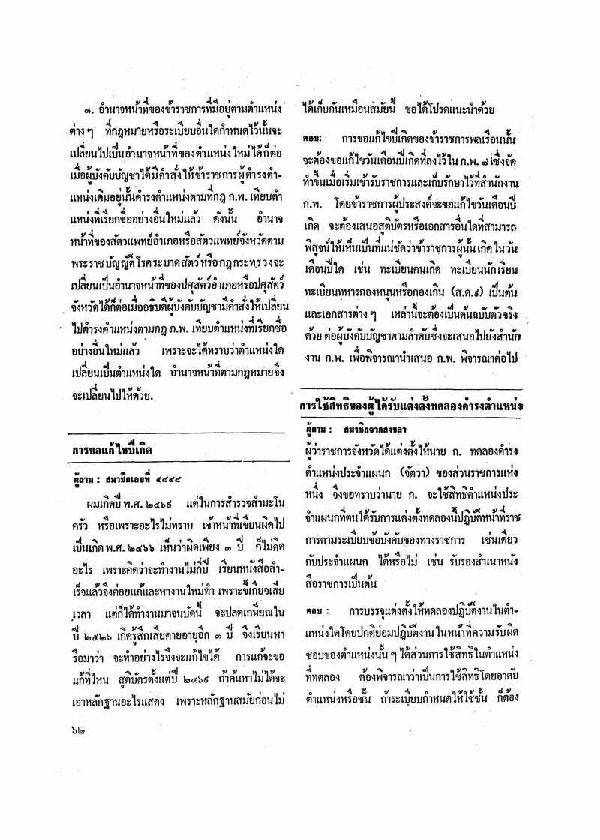 ๓. อำนาจหน้าที่ของข้าราชการที่มีอยู่ตามตำแหน่ง
ต่างๆ ที่กฎหมายหรือระเบียบอื่นใดกำหนดไว้นั้นจะ
เปลี่ยนไปเป็นอำนาจหน้าที่ของตำแหน่งใหม่ได้ก็ต่อ
เมื่อผู้บังคับบัญชาได้มีคำสั่งให้ข้าราชการผู้ดำรงตำ-
แหน่งเดิมอยู่นั้นดำรงตำแหน่งตามที่กฎ ก.พ. เทียบตำ
แหน่งที่เรียกชื่ออย่างอื่นใหม่แล้ว ดังนั้น อำนาจ
หน้าที่ของสัตวแพทย์อำเภอหรือสัตวแพทย์จังหวัดตาม
พระราชบัญญัติโรคระบาดสัตว์หรือกฎกระทรวงจะ
เปลี่ยนเป็นอำนาจหน้าที่ของปศุสัตว์อำเภอหรือปศุสัตว์
จังหวัดได้ก็ต่อเมื่ออธิบดีผู้บังคับบัญชามีคำสั่งให้เปลี่ยน
ไปดำรงตำแหน่งตามกฎ ก.พ. เทียบตำแหน่งที่เรียกชื่อ
อย่างอื่นใหม่แล้ว เพราะจะได้ทราบว่าตำแหน่งใด
เปลี่ยนเป็นตำแหน่งใด อำนาจหน้าที่ตามกฎหมายจึง
จะเปลี่ยนไปให้ด้วย.
การขอแก้ไขปีเกิด
ผู้ถาม : สมาชิกเลขที่ ๕๔๙๔
ผมเกิดปี พ.ศ. ๒๔๖๙ แต่ในการสำรวจสำมะโน
ครัว หรือเพราะอะไรไม่ทราบ เจ้าหน้าที่เขียนผิดไป
เป็นเกิด พ.ศ. ๒๔๖๖ เห็นว่าผิดเพียง ๓ ปี ก็ไม่คิด
อะไร เพราะคิดว่าจะทำงานไม่กี่ปี เรียนหนังสือสำ-
เร็จแล้วจึงค่อยแก้และหางานใหม่ทำ เพราะขี้เกียจเสีย
เวลา แต่ก็ได้ทำงานมาจนบัดนี้ จะปลดเกษียณใน
ปี ๒๕๒๖ เกิดรู้สึกเสียดายอายุอีก ๓ ปี จึงเรียนหา
รือมาว่า จะทำอย่างไรจึงจะแก้ไขได้ การแก้จะขอ
แก้ที่ไหน สูติบัตรตั้งแต่ปี ๒๔๖๙ ถ้าค้นหาไม่ได้จะ
เอาหลักฐานอะไรแสดง เพราะหลักฐานสมัยก่อนไม่
๖๒
ได้เก็บกันเหมือนสมัยนี้ ขอได้โปรดแนะนำด้วย
ตอบ: การขอแก้ไขปีเกิดของข้าราชการพลเรือนนั้น
จะต้องขอแก้ไขวันเดือนปีเกิดที่ลงไว้ใน ก.พ. ๗ ซึ่งจัด
ทำขึ้นเมื่อเริ่มเข้ารับราชการและเก็บรักษาไว้ที่สำนักงาน
ก.พ. โดยข้าราชการผู้ประสงค์จะขอแก้ไขวันเดือนปี
เกิด จะต้องเสนอสูติบัตรหรือเอกสารอื่นใดที่สามารถ
พิสูจน์ให้เห็นเป็นที่แน่ชัดว่าข้าราชการผู้นั้นเกิดในวัน
เดือนปีใด เช่น ทะเบียนคนเกิด ทะเบียนนักเรียน
ทะเบียนทหารกองหนุนหรือกองเกิน (ส.ด.๙) เป็นต้น
และเอกสารต่างๆ เหล่านี้จะต้องเป็นต้นฉบับตัวจริง
ด้วย ต่อผู้บังคับบัญชาตามลำดับซึ่งจะเสนอไปยังสำนัก
งาน ก.พ. เพื่อพิจารณานำเสนอ ก.พ. พิจารณาต่อไป
การใช้สิทธิของผู้ได้รับแต่งตั้งทดลองดำรงตำแหน่ง
ผู้ถาม : สมาชิกจากสงขลา
ผู้ว่าราชการจังหวัดได้แต่งตั้งให้นาย ก. ทดลองดำรง
ตำแหน่งประจำแผนก (จัตวา) ของส่วนราชการแห่ง
หนึ่ง จึงขอทราบว่านาย ก. จะใช้สิทธิตำแหน่งประ
จำแผนกที่ตนได้รับการแต่งตั้งทดลองนี้ปฏิบัติหน้าที่ราช
การตามระเบียบข้อบังคับของทางราชการ เช่นเดียว
กับประจำแผนก ได้หรือไม่ เช่น รับรองสำเนาหนัง
สือราชการเป็นต้น
ตอบ : การบรรจุแต่งตั้งให้ทดลองปฏิบัติงานในตำ-
แหน่งใดโดยปกติย่อมปฏิบัติงานในหน้าที่ความรับผิด
ชอบของตำแหน่งนั้น ๆ ได้ส่วนการใช้สิทธิในตำแหน่ง
ที่ทดลอง ต้องพิจารณาว่าเป็นการใช้สิทธิโดยอาศัย
ตำแหน่งหรือชั้น ถ้าระเบียบกำหนดให้ใช้ชั้น ก็ต้อง